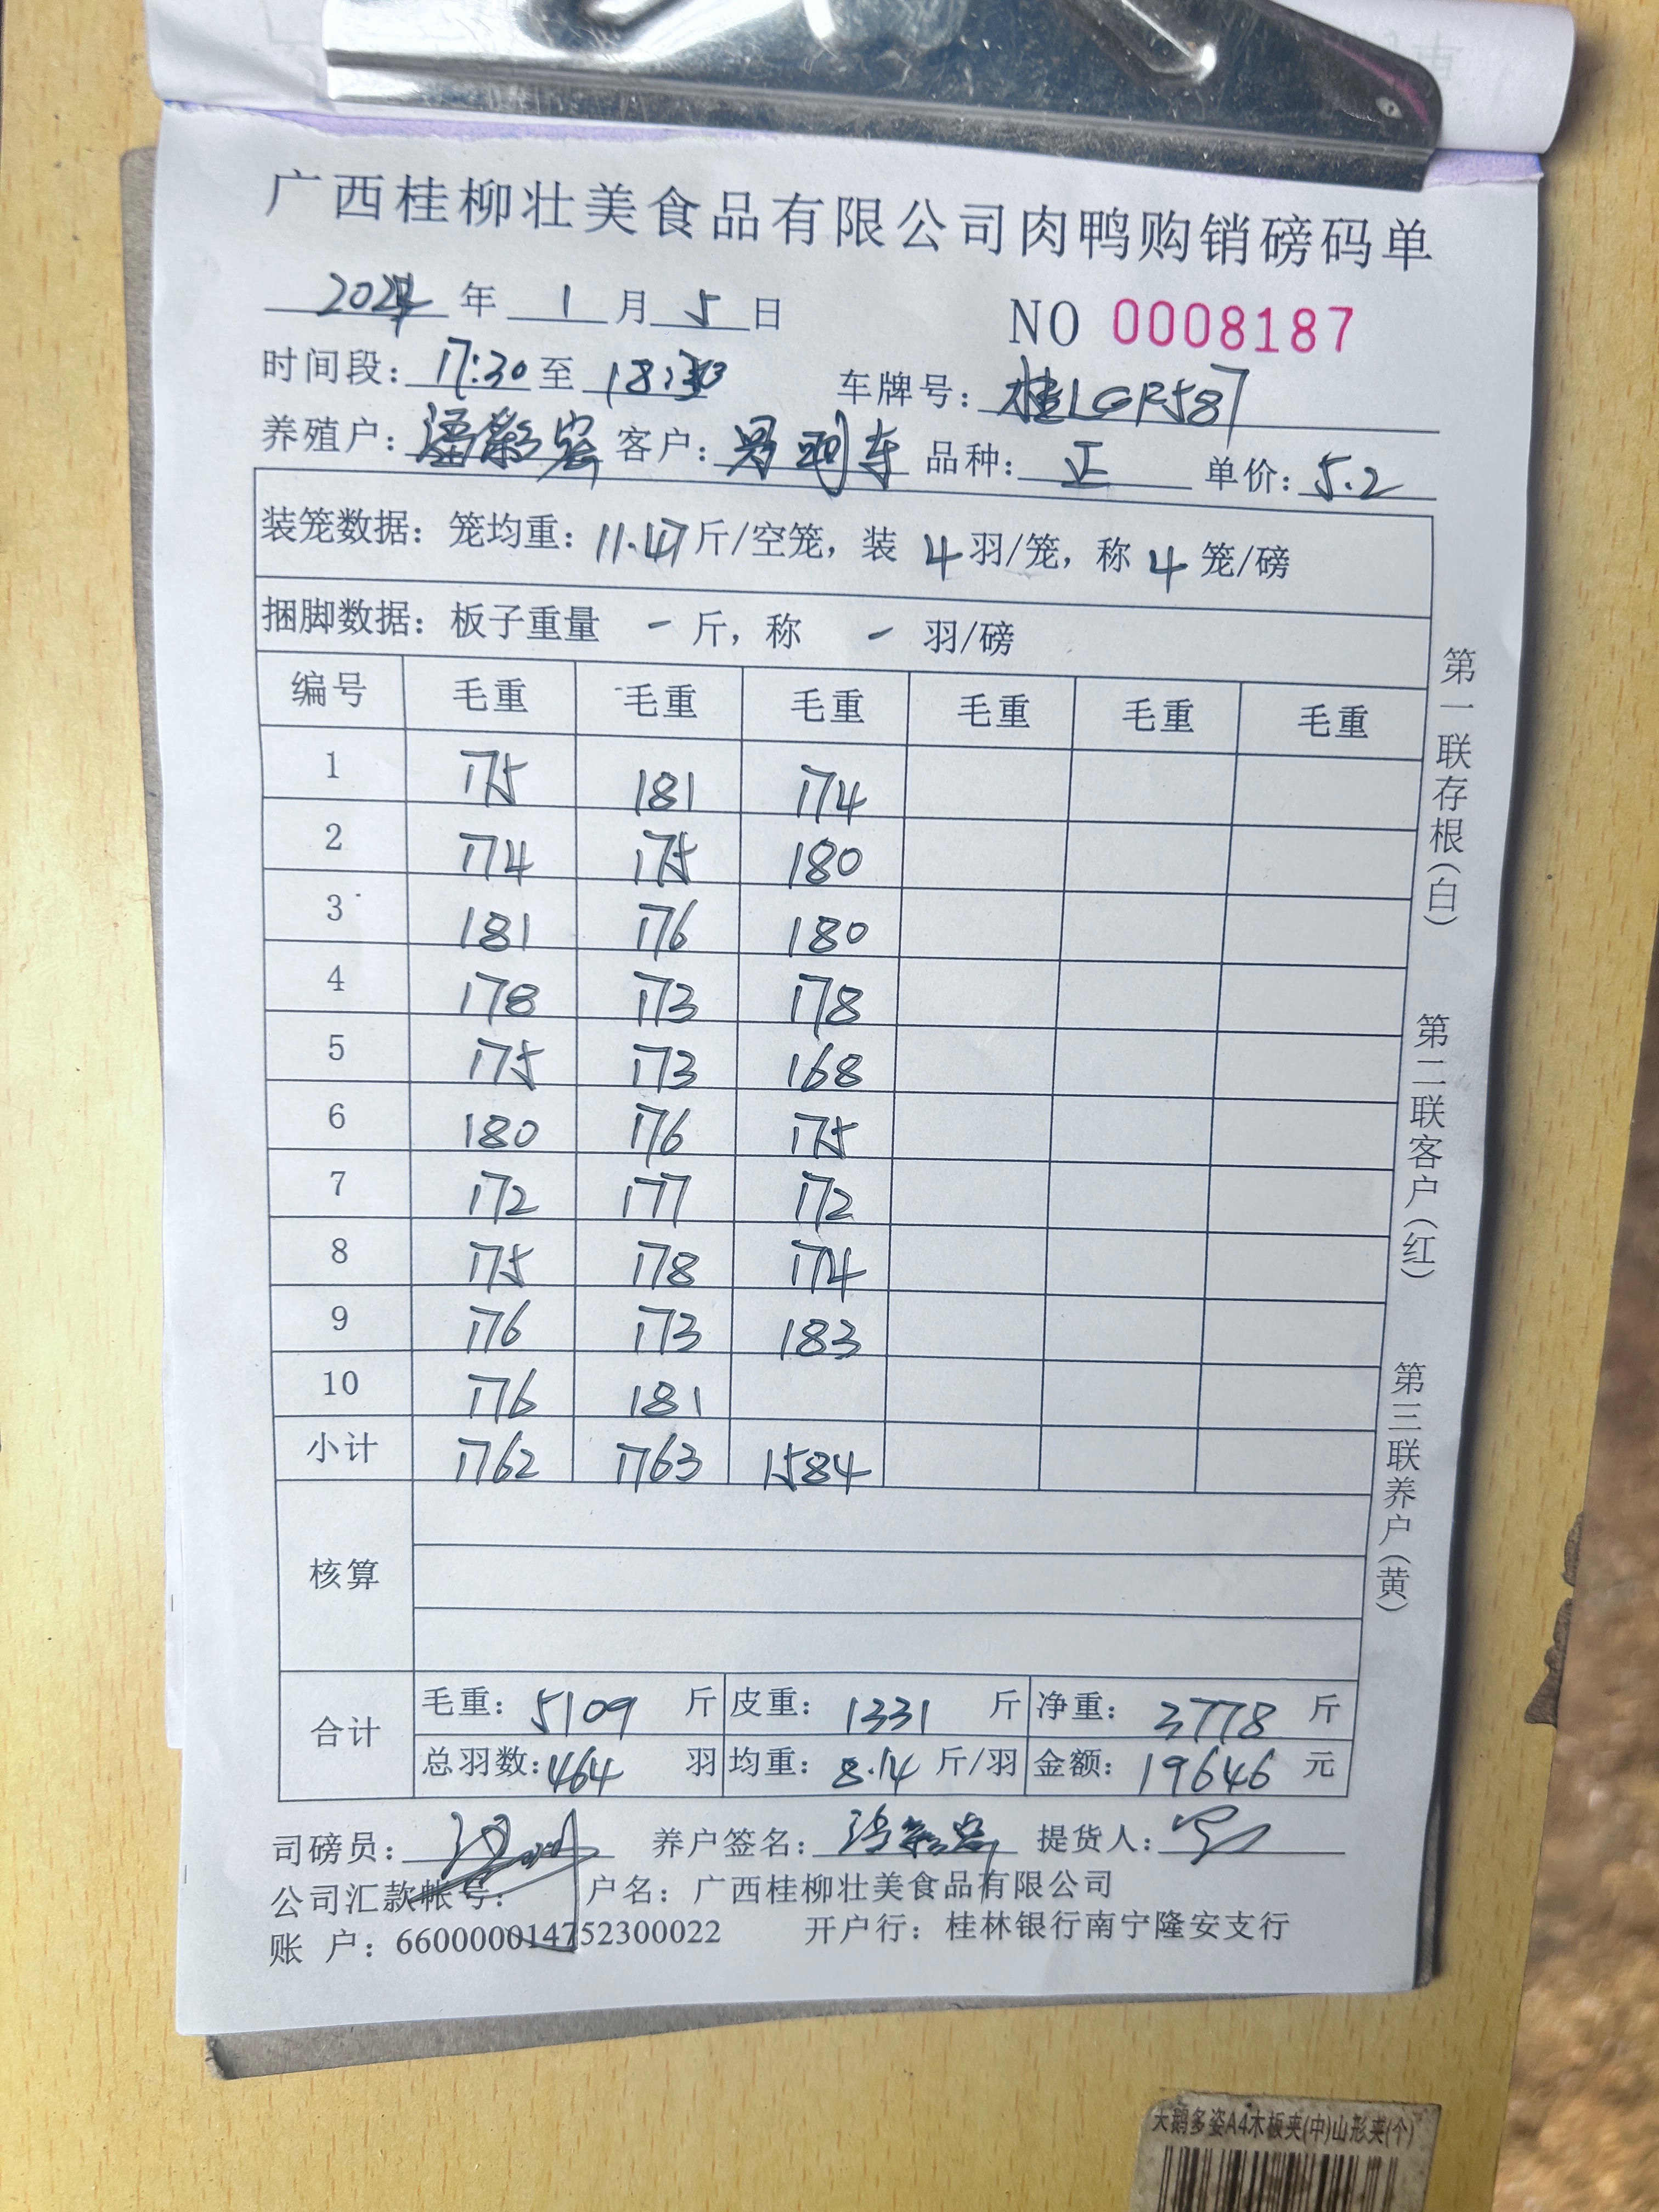 广西桂柳壮美食品有限公司肉鸭购销磅码单
2024年 1月 5日 NO 0008187
时间段：17:30 至 18:30 车牌号：桂LGR587
养殖户： 客户： 品种：正 单价：5.2
装笼数据：笼均重：11.47斤/空笼，装 4 羽/笼，称 4 笼/磅
捆脚数据：板子重量 - 斤，称 - 羽/磅
编号 毛重 毛重 毛重 毛重 毛重 毛重
1 175 181 174
2 174 175 180
3 181 176 180
4 178 173 178
5 175 173 168
6 180 176 175
7 172 177 172
8 175 178 174
9 176 173 183
10 176 181
小计 1762 1763 1584
核算
合计
毛重：5109 斤 皮重：1331 斤 净重：3778 斤
总羽数：464 羽 均重：8.14 斤/羽 金额：19646 元
司磅员： 养户签名： 提货人：
公司汇款帐号： 户名：广西桂柳壮美食品有限公司
账 户：660000014752300022 开户行：桂林银行南宁隆安支行
第一联存根(白)
第二联客户(红)
第三联养户(黄)
天鹅多姿A4木板夹(中)山形夹(个)